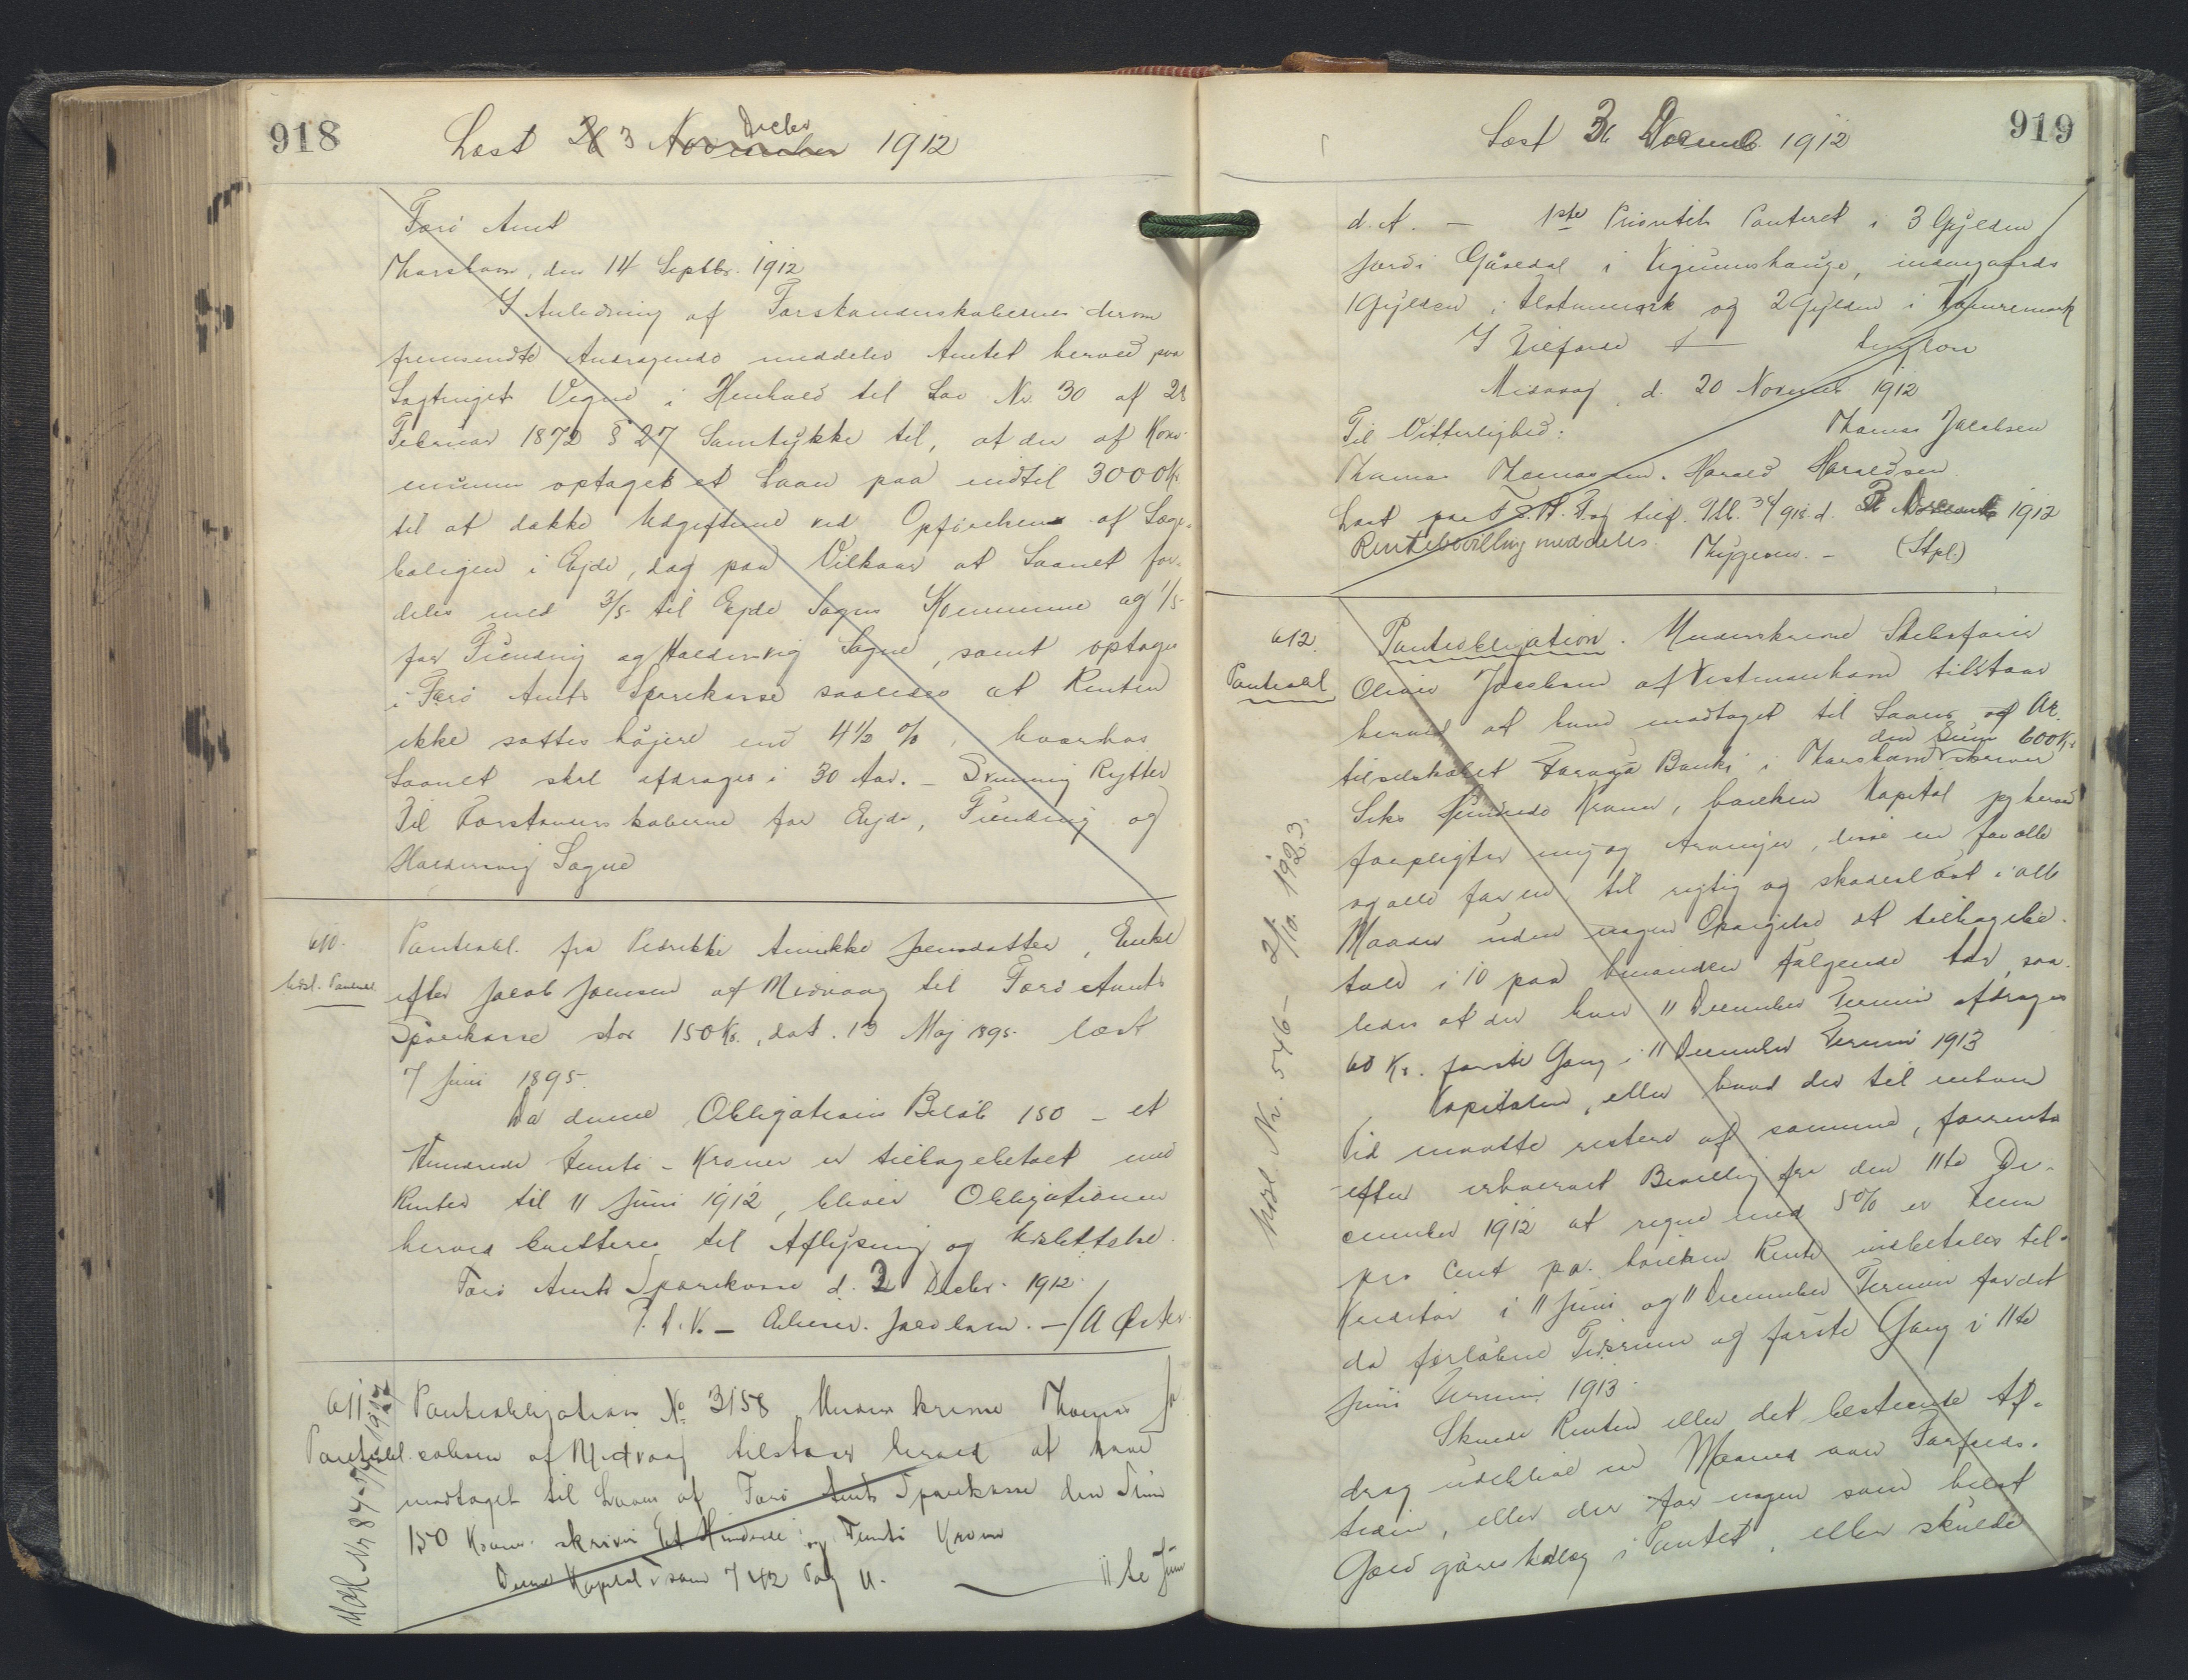 918
Læst 26 3 November Decbr 1912
Færö Amt
Thorshavn, den 14 Septbr. 1912
I Anledning af Forstanderskabernes derom
fremsendte Andragende meddeles Amtet herved paa
Lagtingets Vegne i Henhold til Lov No. 30 af 28
Februar 1872 § 27 Samtykke til, at der af Kom-
munen optages et Laan paa indtil 3000 Kr
til at dække Udgifterne ved Opförelsen af Læge-
boligen i Ejde, dog paa Vilkaar at Laanet for-
deles med 3/5 til Ejde Sogns Kommune og 1/5
for Funding og Haldersvig Sogne, samt optages
i Færö Amts Sparekasse saaledes at Renten
ikke sættes höjere end 4½ %, hvorhos
Laanet skal afdrages i 30 Aar. — Svenning Rytter
Til Forstanderskaberne for Ejde, Funding og
Haldersvig Sogne
610.
Udsl. Panteobl
Panteobl. fra Pedrikke Annikke Jensdatter, Enke
efter Jacob Joensen af Midvaag til Færö Amts
Sparekasse stor 150 Kr., dat. 13 Maj 1895 læst
7 Juni 1895.
Da denne Obligations Belöb 150 — et
Hundrede Femti — Kroner er tilbagebetalt med
Renter til 11 Juni 1912, bliver Obligationen
herved kvitteres til Aflysning og Udslettelse.
Færö Amts Sparekasse d. 2 Decbr. 1912.
P. D. V. — Oliver Jacobsen. — / A Öster
611
Panteobl.
Panteobligation No 3158 Underskrevne Thomas Ja-
cobsen af Midvaag tilstaar herved at have
modtaget til Laans af Færö Amts Sparekasse den Sum
150 Kroner skriver Et Hundrede og Femti Kroner
Denne Kapital som 742 Pag 11. — 11te Juni
Udsl Nr 87
919
Læst 3 Decemb. 1912
d. A. — 1ste Prioritets Panteret i 3 Gylden
Jord i Gåsedal i Vigumshauge, indengaards
1 Gylden i Flatumørk og 2 Gylden i
I Tilfælde
Midvaag, d. 20 November 1912
Til Vitterlighed: Thomas Jacobsen
Thomas Thomassen. Harald Haraldsen.
Læst paa 1912
Rentebevilling meddeles. Thygesen. — (Stpl.)
612.
Panteobl
Udsl Nr. 546 — 2/10 1923.
Panteobligation. Underskrevne
Oliver Jacobsen af Vestmanhavn tilstaar
herved at have modtaget til Laans af Ak
tieselskabet Færøya Banki i Thorshavn den Sum 600 Kr skriver
Seks Hundrede Kroner, hvilken Kapital jeg herved
forpligter mig og Arvinger, disse en for alle
og alle for en, til rigtig og skadeslöst i alle
Maader uden nogen Opsigelse at tilbagebe-
tale i 10 paa hinanden fölgende Aar, saa-
ledes at der hver 11 December Termin afdrages
60 Kr. förste Gang i 11 December Termin 1913
Kapitalen, eller hvad der til enhver
Tid maatte restere af samme, forrentes
efter erhvervet Bevilling fra den 11te De-
cember 1912 at regne med 5 % er Fem
pro Cent pa. hvilken Rente indbetales til
Kreditor i 11 Juni og 11 December Termin for det
da forløbne Tidsrum og förste Gang i 11te
Juni Termin 1913.
Skulde Renten eller det bestemte Af-
drag udeblive en Maaned over Forfalds-
tiden, eller der for nogen som helst
Gæld göres Udlæg i Pantet, eller skulde